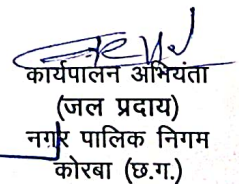 कार्यपालन अभियंता
(जल प्रदाय)
नगर पालिक निगम
कोरबा (छ.ग.)